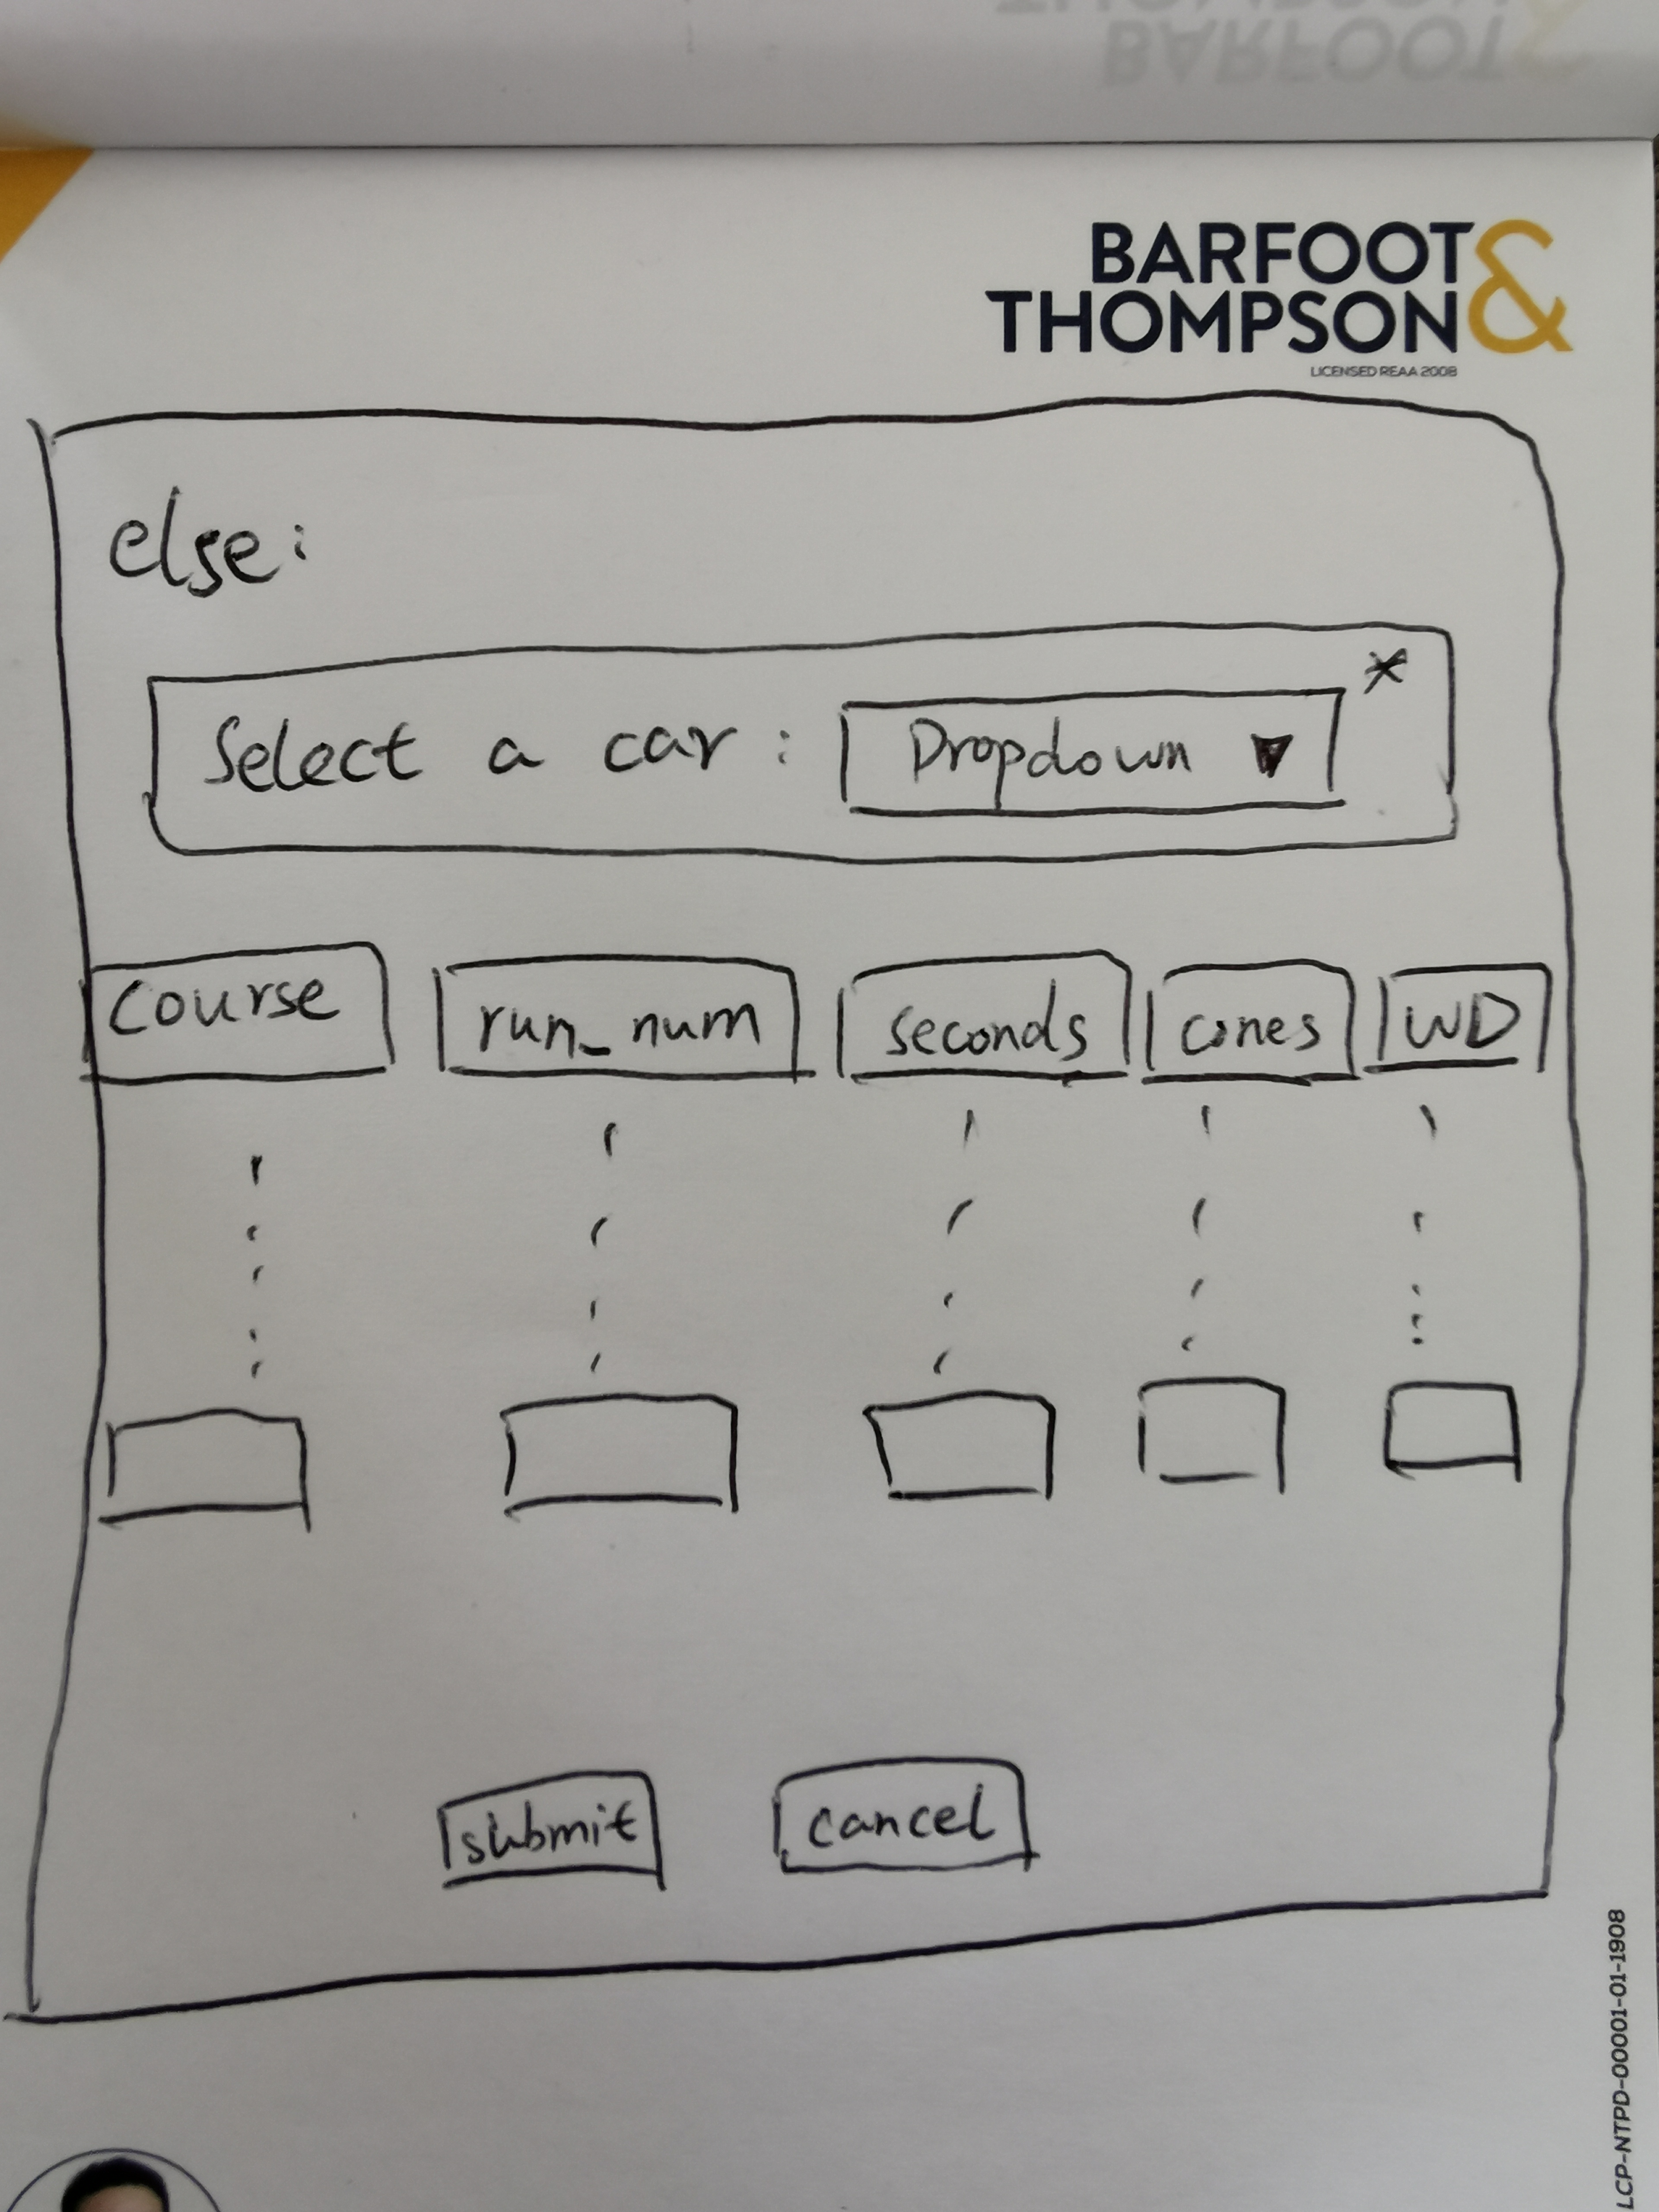 BARFOOT
THOMPSON &
LICENSED REAA 2008
else:
Select a car : Dropdown ▼ *
course run_num seconds cones WD
submit cancel
LCP-NTPD-00001-01-1908
THOMPSON
BARFOOT &